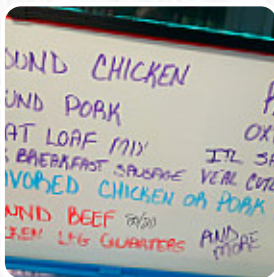 OUND CHICKEN
UND PORK
AT LOAF MIX
BREAKFAST SAUSAGE
AVORED CHICKEN OR PORK
UND BEEF 80/20
KEN LEG QUARTERS
OX
ITL SA
VEAL CUT
AND MORE